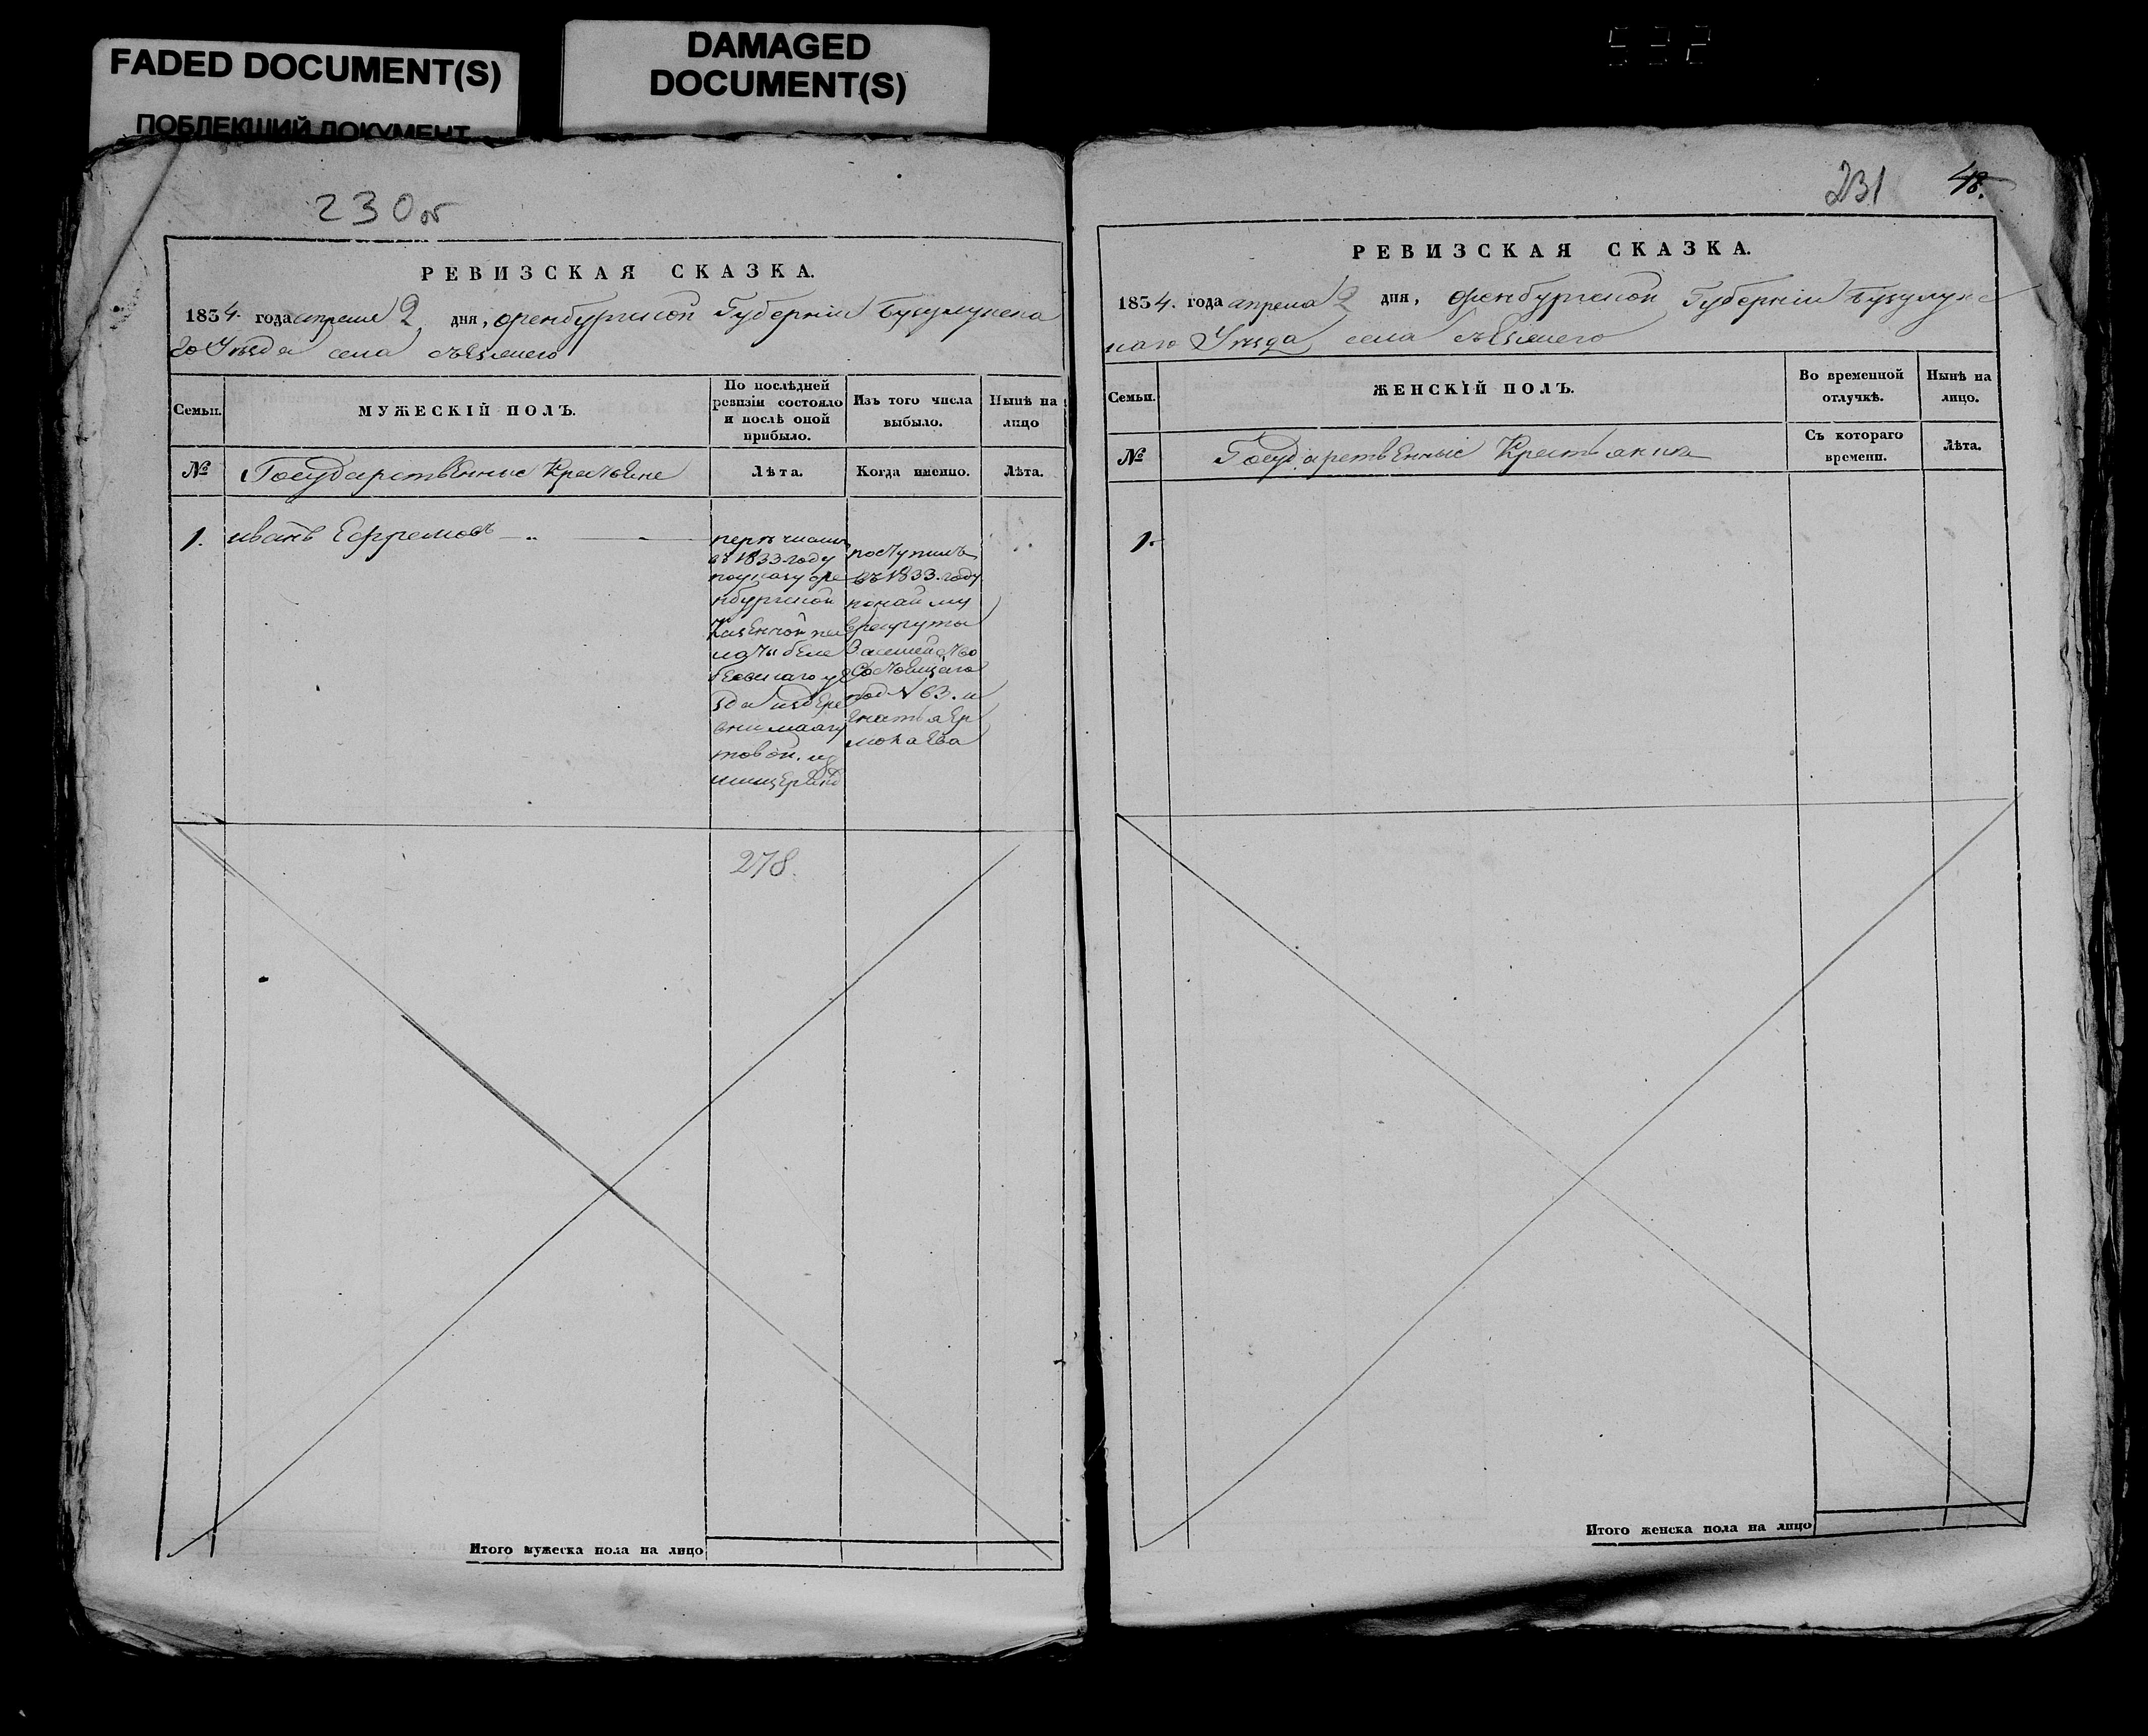 FADED DOCUMENT(S)
ПОБЛЕКШИЙ ДОКУМЕНТ
DAMAGED
DOCUMENT(S)
532
230об
РЕВИЗСКАЯ СКАЗКА.
1834. года апреля 2 дня, Оренбургской Губернiи Бузулукска
го Уезда села съезжего
Семьи.
МУЖЕСКІЙ ПОЛЪ.
По послѣдней
ревизіи состояло
и послѣ оной
прибыло.
Изъ того числа
выбыло.
Нынѣ на
лицо
№
Государственные Крестьяне
Лѣта.
Когда именно.
Лѣта.
1. иванъ Ефремовъ
перечислен
въ 1833 году
по указу оре
нбургской
казенной па
латы беле
беевскаго уе
зда из дере
вни
товой. из
поступилъ
въ 1833. году
по найму
в рекруты
За семейство
Состоящаго
под № 63. и
гнатья Ер
молаева
278.
Итого мужеска пола на лицо
231
48.
РЕВИЗСКАЯ СКАЗКА.
1834. года апреля 2 дня, Оренбургской Губернiи Бузулукс
каго Уезда села съезжего
Семьи.
ЖЕНСКІЙ ПОЛЪ.
Во временной
отлучкѣ.
Нынѣ на
лицо.
№
Государственные Крестьянки
Съ котораго
времени.
Лѣта.
1.
Итого женска пола на лицо